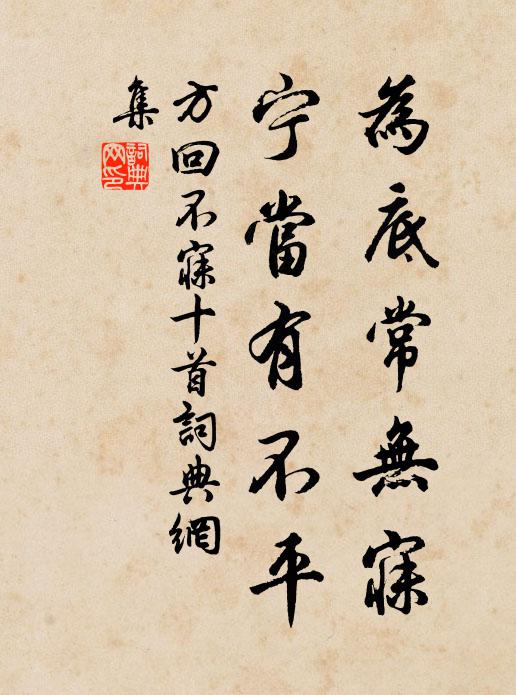 為底常無寐
宁當有不平
方回不寐十首詞典網
集
詞典
网印